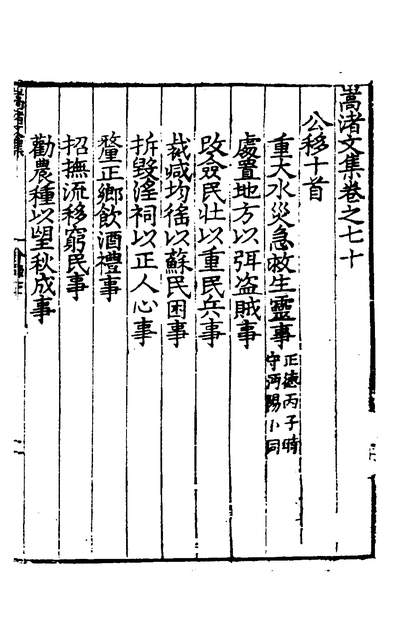 嵩渚文集卷之七十
公移十首
重大水災急救生靈事正德丙子時守沔陽卜同
處置地方以弭盜賊事
改僉民壯以重民兵事
裁減均徭以蘇民困事
拆毀淫祠以正人心事
釐正鄉飲酒禮事
招撫流移窮民事
勸農種以望秋成事
嵩渚集